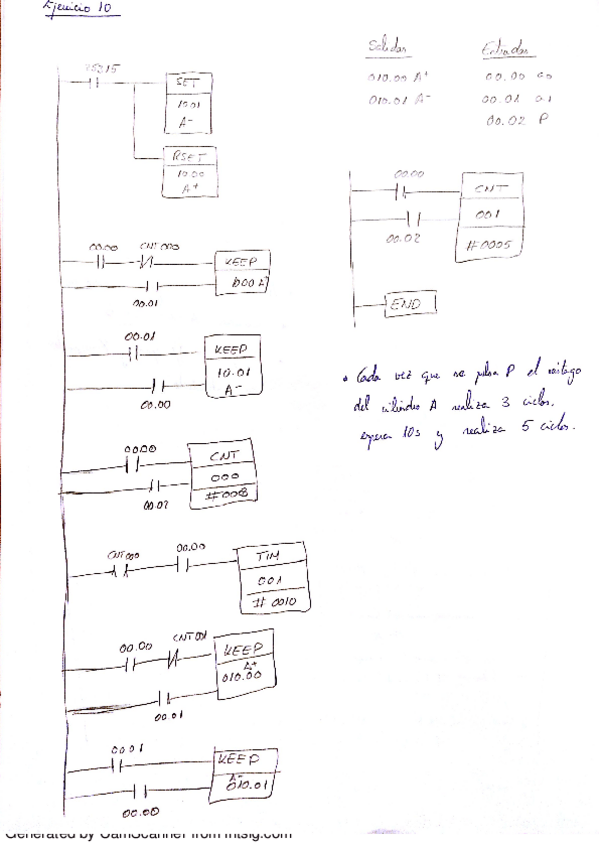 Ejercicio 10
Salidas Entradas
010.00 A+ 00.00 a0
010.01 A- 00.01 a1
00.02 P
25315
SET
10.01
A-
RSET
10.00
A+
00.00 CNT 000
KEEP
00.01
00.01
KEEP
10.01
A-
00.00
00.00
CNT
000
00.02
CNT 000 00.00
TIM
001
# 0010
00.00 CNT 001
KEEP
A+
010.00
00.01
00.01
KEEP
A-
010.01
00.00
00.00
CNT
001
00.02
#0005
END
• Cada vez que se pulsa P el vástago
del cilindro A realiza 3 ciclos.
espera 10s y realiza 5 ciclos.
Generated by CamScanner from intsig.com